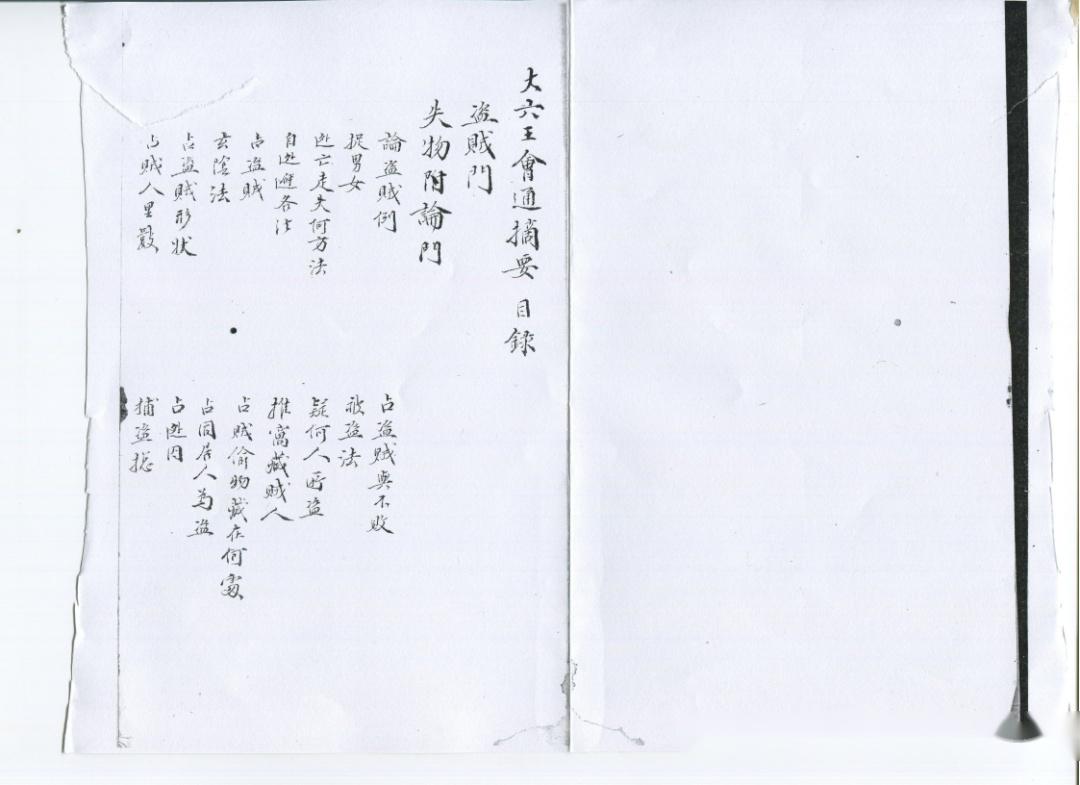 大六壬會通摘要 目錄
盜賊門
失物附論門
論盜賊例
捉男女
逃亡走失何方法
自逃避各法
占盜賊
玄陰法
占盜賊形狀
占賊人里數
占盜賊與不敗
被盜法
疑何人所盜
推窩藏賊人
占賊偷物藏在何處
占同居人為盜
占逃
捕盜